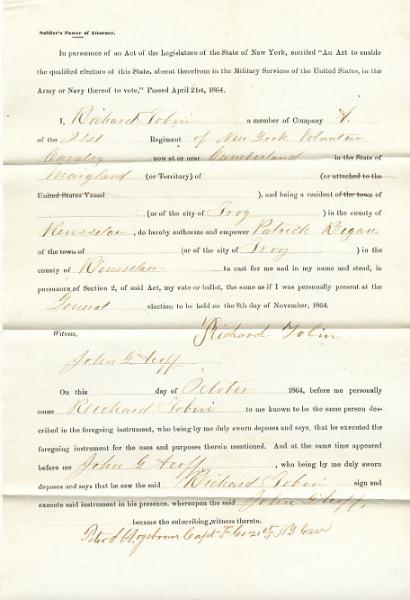 Soldier's Power of Attorney.
In pursuance of an Act of the Legislature of the State of New York, entitled "An Act to enable
the qualified electors of this State, absent therefrom in the Military Services of the United States, in
the Army or Navy thereof to vote," Passed April 21st, 1864.
I, Richard Tobin a member of Company A.
of the 21st Regiment of New York Volunteer
Cavalry now at or near Cumberland in the State of
Maryland (or Territory) of (or attached to the
United States Vessel ), and being a resident of the town of
(or of the city of Troy ) in the county of
Rensselaer, do hereby authorize and empower Patrick Regan
of the town of (or of the city of Troy ) in the
county of Rensselaer to cast for me and in my name and stead, in
pursuance of Section 2, of said Act, my vote or ballot, the same as if I was personally present at the
General election to be held on the 8th day of November, 1864.
Witness, Richard Tobin
John G.
On this day of October 1864, before me personally
came Richard Tobin to me known to be the same person des-
cribed in the foregoing instrument, who being by me duly sworn deposes and says, that he executed the
foregoing instrument for the uses and purposes therein mentioned. And at the same time appeared
before me John G. , who being by me duly sworn
deposes and says that he saw the said Richard Tobin sign and
execute said instrument in his presence, whereupon the said John G.
became the subscribing witness thereto.
Capt F Co 21st NY Cav